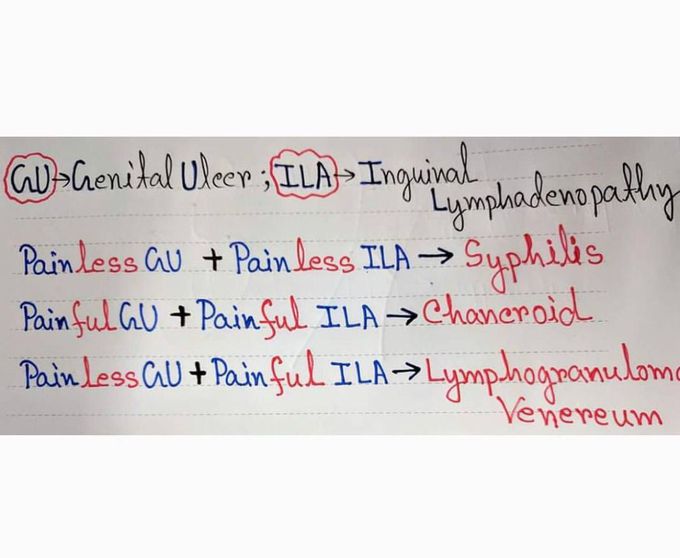 GU→Genital Ulcer; ILA→Inguinal
Lymphadenopathy
Painless GU + Painless ILA → Syphilis
Painful GU + Painful ILA → Chancroid
Painless GU + Painful ILA → Lymphogranuloma
Venereum